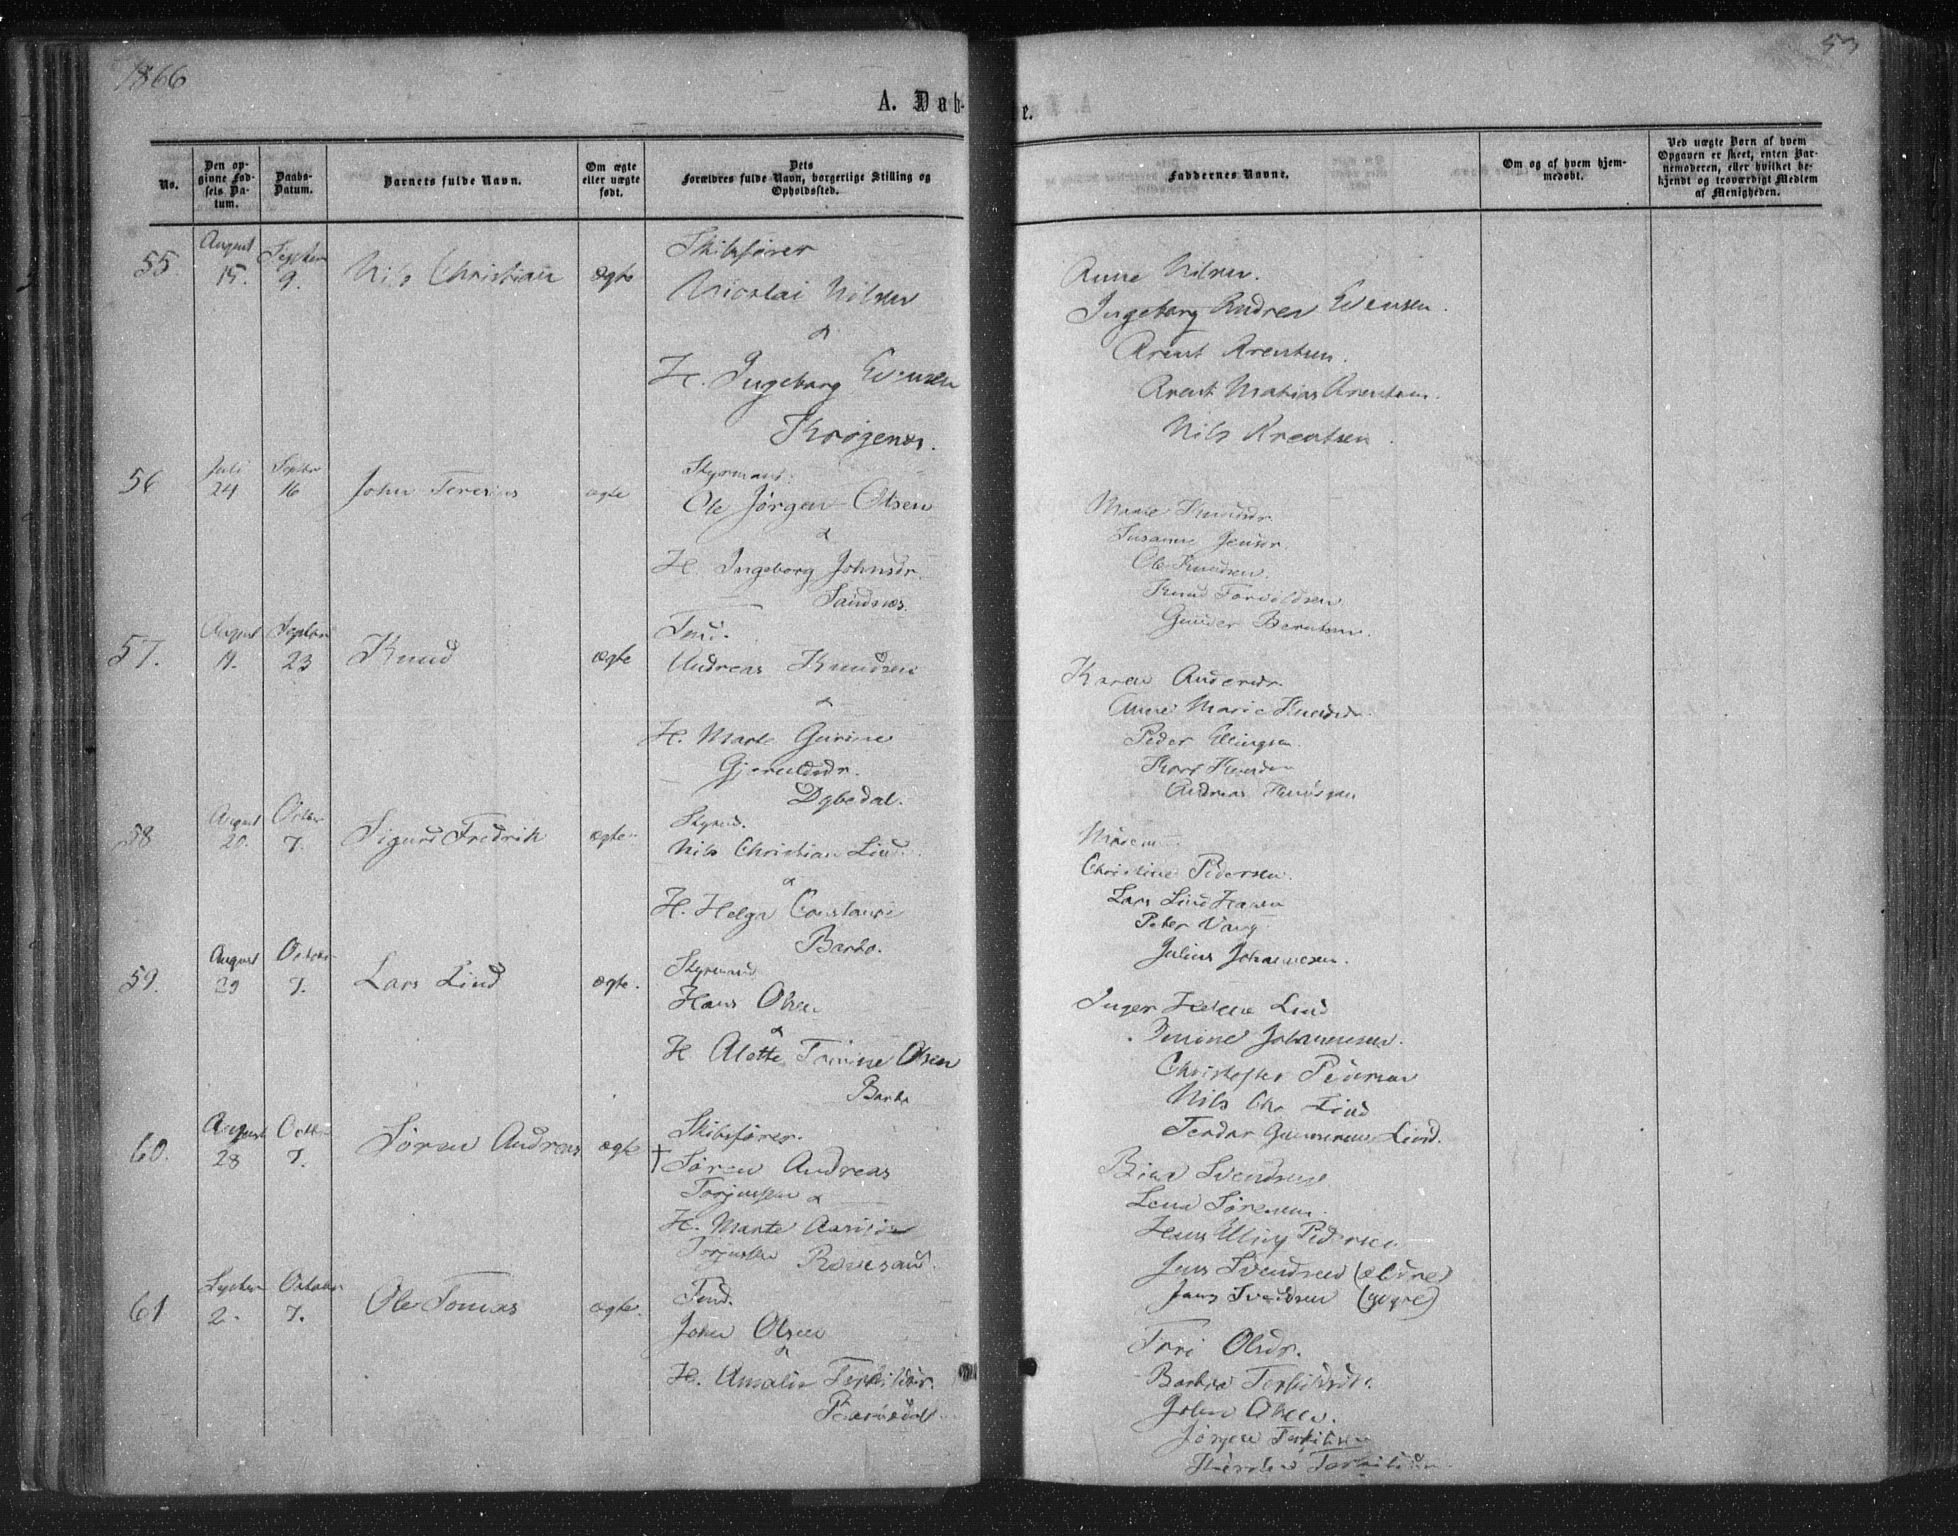 1866
53
A. Daab-
be.
No.
Den op-
givne Fød-
sels Da-
tum.
Daabs-
Datum.
Barnets fulde Navn.
Om ægte
eller uægte
født.
Dets
Forældres fulde Navn, borgerlige Stilling og
Opholdssted.
Faddernes Navne.
Om og af hvem hjem-
medøbt.
Ved uægte Barn af hvem
Opgaven er skeet, enten Bar-
nemoderen, eller hvilket be-
kjendt og troværdigt Medlem
af Menigheden.
55. August 15. September 9. Nils Christian ægte
Skibsfører
Nicolai Nilsen
&
H. Ingeborg Evensen
Krøgenes.
Anne Nilsen.
Ingeborg Andrea Evensen.
Arent Arentsen.
Arent Mathias Arentsen.
Nils Arentsen
56 Juli 24 Septbr 16 John Teresius ægte
Styrmand.
Ole Jørgen Olsen
&
H. Ingeborg Johnsdr.
Sandnæs.
Marte Knudsdr.
Susanne Jensdr.
Ole Knudsen.
Knud Torvildsen
Gunder Berntsen.
57. August 19. Septbr 23 Knud ægte
Tend.
Andreas Knudsen
&
H. Marte Gurine
Gjeruldsdr.
Dybedal.
Karen Andersdr.
Anne Marie Knudsdr.
Peder Ellingsen.
Knudsen
Andreas Knudsen
58 August 20. Octbr 7. Sigurd Fredrik ægte
Styrmd.
Nils Christian Lind.
&
H. Helga Constance
Barbo.
Moderen
Christine Pedersen.
Lars Lind Hansen
Peter Vang
Julius Johannesen.
59. August 29 Octobr 7. Lars Lind ægte.
Styrmand
Hans Olsen
&
H Alette Tomine Olsen
Barbo
Inger Helene Lind
Johannesen.
Christoffer Pedersen
Nils Chr Lind
Gunnersen Lind.
60. August 28 Octbr 7. Søren Andreas ægte
Skibsfører.
† Søren Andreas
Torjussen &
H. Marte
Torjussen Revesand.
Svendsen
Lena Sørensen.
Hans Ulrik Pedersen
Jens Svendsen (ældre)
Jens Svendsen (yngre)
61 Septbr 2. Octobr 7. Ole Tomas ægte.
Tend.
John Olsen
&
H. Amalie Terkildsdr.
Olsdr.
Terkildsdr.
John Olsen.
Jørgen Terkildsen
Terkildsen